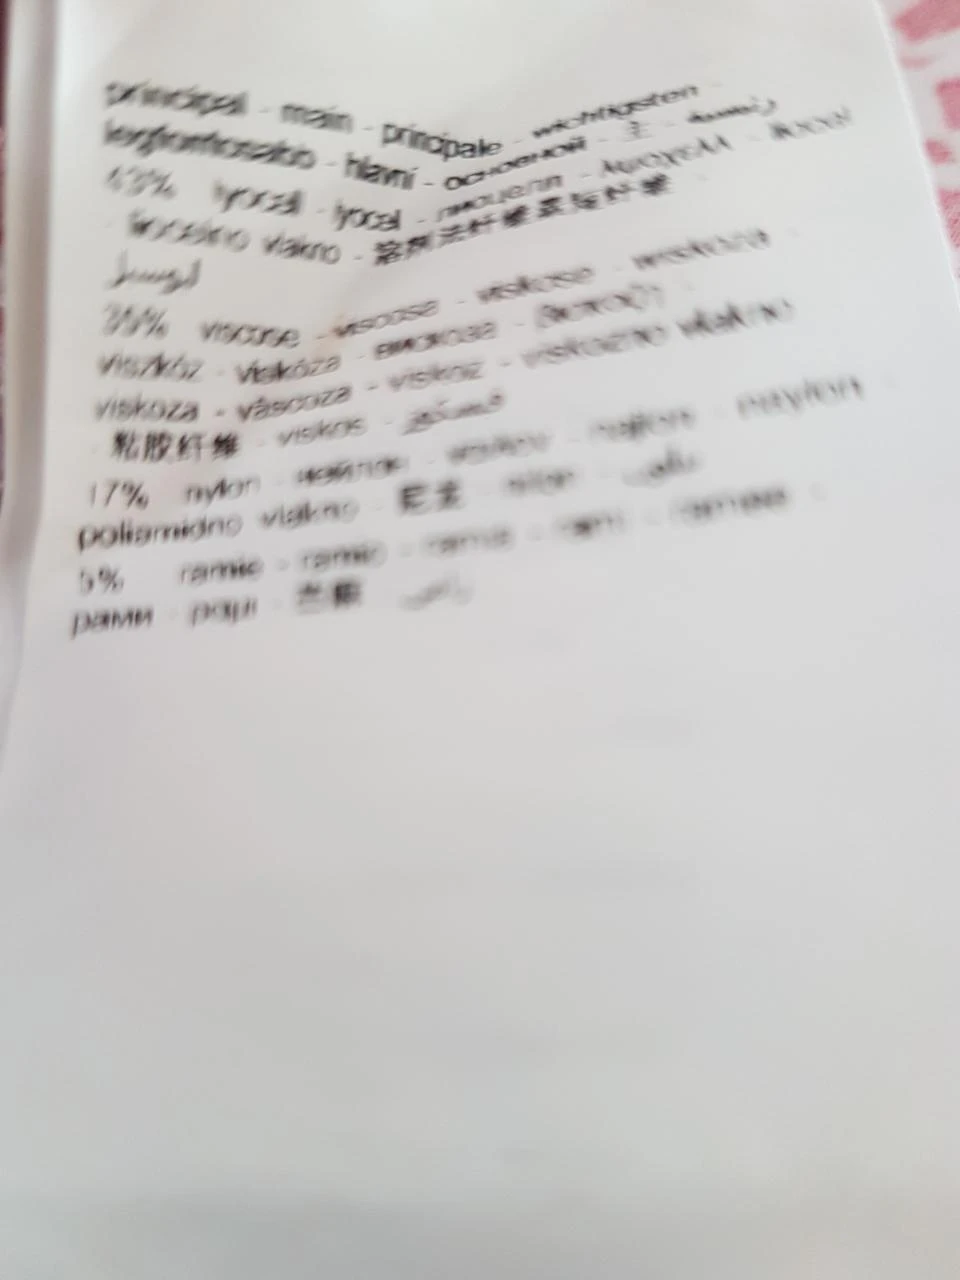 principal - main - principale - wichtigsten -
legfontosabb - hlavní - основной - 主 - رئيسية
43% lyocell - lyocell - лиоцелл - λυοχελλ - liocel
- liocelno vlakno - 溶剂法纤维素短纤维 -
ليوسيل
35% viscose - viscosa - viskose - wiskoza -
viszkóz - viskóza - вискоза - βισκόζη -
viskoza - vâscoza - viskoz - viskozno vlakno
- 粘胶纤维 - viskos - فسكوز
17% nylon - нейлон - νάιλον - najlon - naylon -
poliamidno vlakno - 尼龙 - nilon - نايلون
5% ramie - ramio - ramia - rami - ramee -
рами - ραμί - 苎麻 - رامي